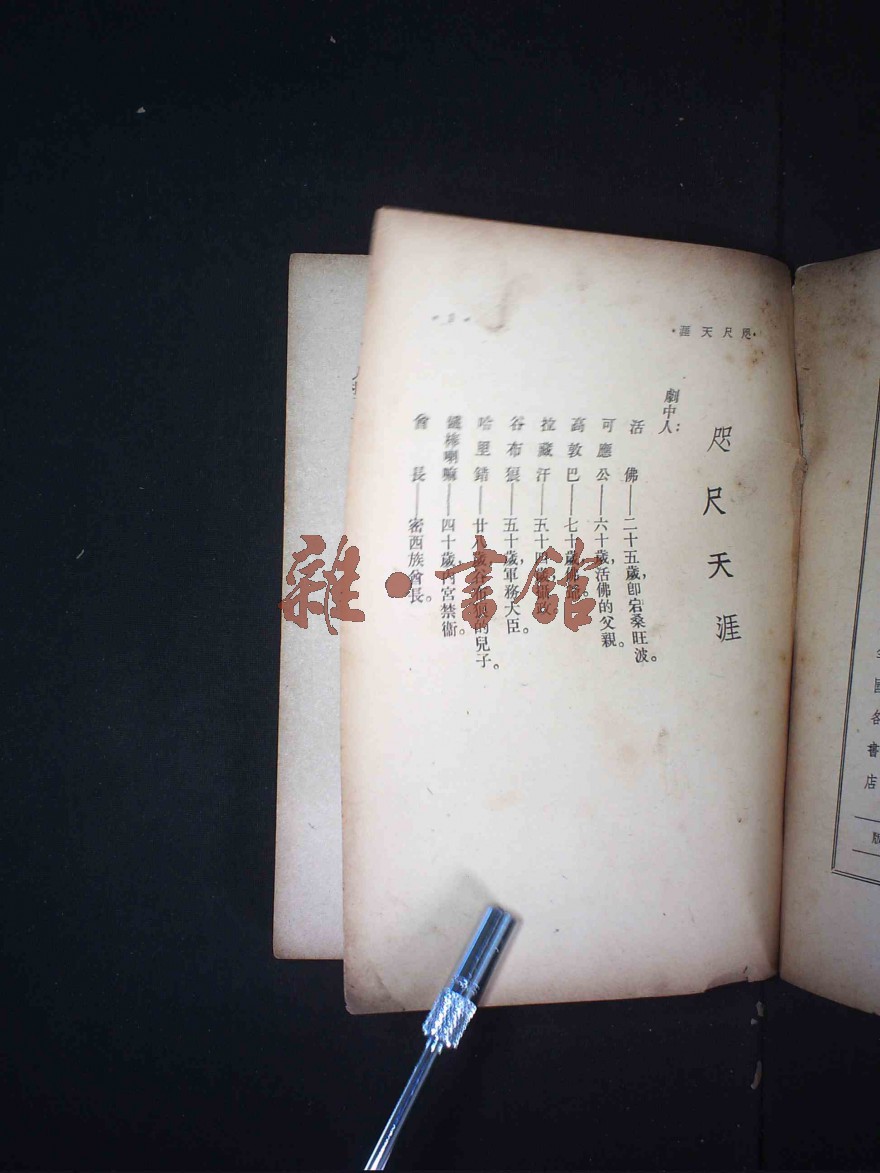 •咫尺天涯•
咫尺天涯
劇中人：
活佛——二十五歲，卽宕桑旺波。
可應公——六十歲，活佛的父親。
高敦巴——七十歲，佛爺。
拉藏汗——五十四歲，
谷布狠——五十歲，軍務大臣。
哈里錯——廿八歲，谷布狠的兒子。
鐵棒喇嘛——四十歲，內宮禁衞。
酋長——密西族酋長。
國各書店
版
雜·書館